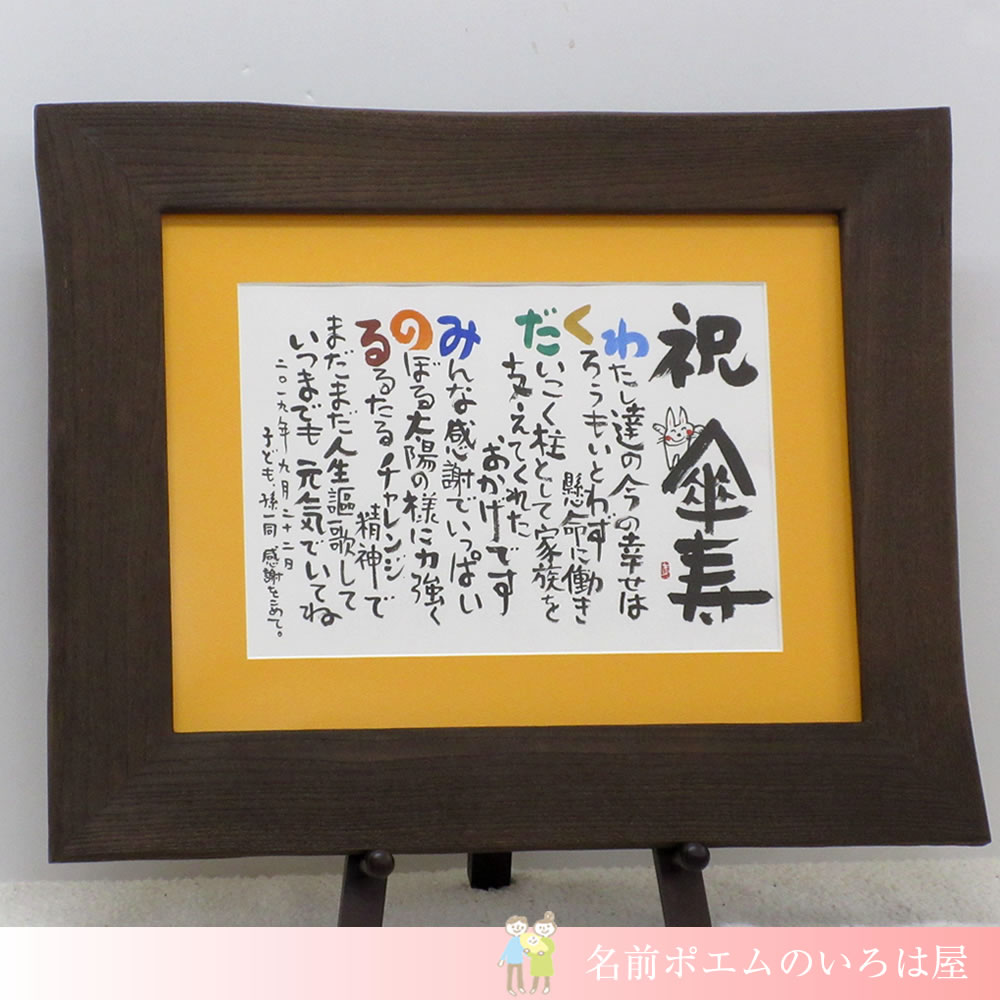 祝 傘寿
わたし達の今の幸せは
くろうもいとわず
懸命に働き
だいこく柱として家族を
支えてくれた
おかげです
みんな感謝でいっぱい
のぼる太陽の様に力強く
るるたるチャレンジ
精神で
まだまだ人生謳歌して
いつまでも元気でいてね
二〇一九年九月二十二月
子ども、孫一同 感謝をこめて。
名前ポエムのいろは屋